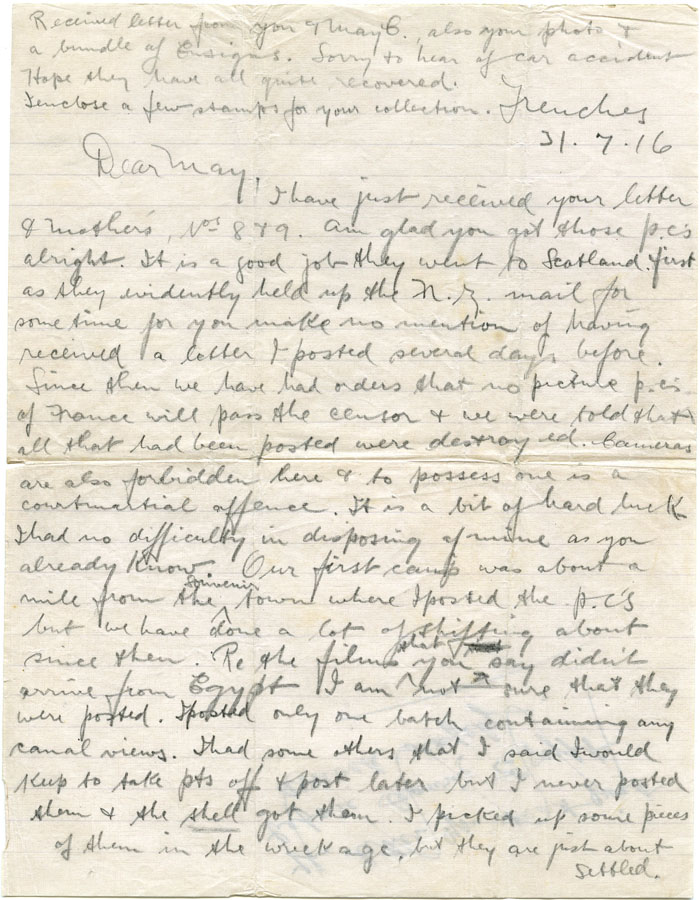 Received letter from you 9 May 6. also your photo &
a bundle of Ensigns. Sorry to hear of car accident
Hope they have all quite recovered.
I enclose a few stamps for your collection. Trenches
31. 7. 16
Dear May,
I have just received your letter
& mother's, Nos 8 & 9. Am glad you got those p.c's
alright. It is a good job they went to Scotland first
as they evidently held up the N.Z. mail for
some time for you make no mention of having
received a letter I posted several days before.
Since then we have had orders that no picture p.c's
of France will pass the censor & we were told that
all that had been posted were destroyed. Cameras
are also forbidden here & to possess one is a
courtmartial offence. It is a bit of hard luck
I had no difficulty in disposing of mine as you
already know. Our first camp was about a
mile from the souvenir town where I posted the p.c's
but we have done a lot of shifting about
since then. Re the films that you say didn't
arrive from Egypt I am not sure that they
were posted. I posted only one batch containing any
canal views. I had some others that I said I would
keep to take pts off & post later but I never posted
them & the shell got them. I picked up some pieces
of them in the wreckage, but they are just about
settled.